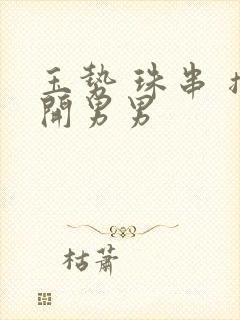 玉势 珠串 扌
開男男
枯蕭